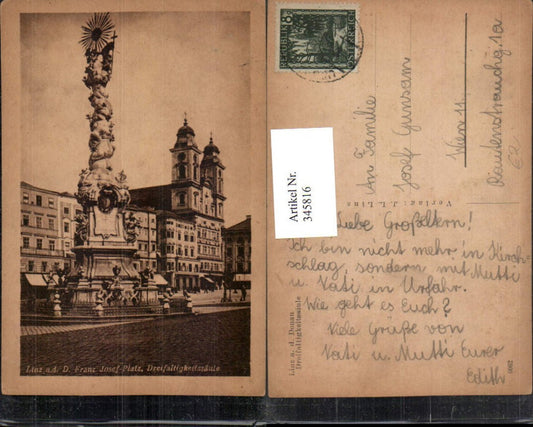 Linz a.d. D. Franz Josef-Platz, Dreifaltigkeitssäule
8g
REPUBLIK
ÖSTERREICH
An Familie
Josef Gunsam
Wien 11.
1a
62
Artikel Nr.
345816
Verlag: J. L. Linz
Linz a. d. Donau
Dreifaltigkeitssäule
Liebe Großeltern!
Ich bin nicht mehr in Kirch-
schlag, sondern mit Mutti
u. Vati in Urfahr.
Wie geht es Euch?
Viele Grüße von
Vati u. Mutti Eurer
Edith